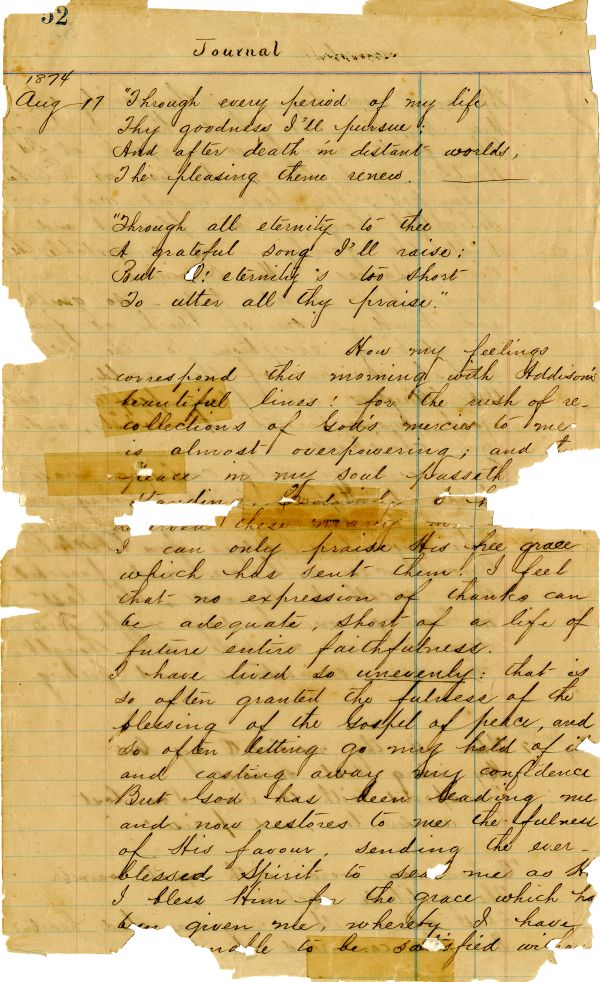 52
Journal
1874
Aug 17 "Through every period of my life
Thy goodness I'll pursue;
And after death in distant worlds,
The pleasing theme renew.
"Through all eternity to thee
A grateful song I'll raise;
But O! eternity's too short
To utter all thy praise."
How my feelings
correspond this morning with Addison's
beautiful lines! for the rush of re-
collections of God's mercies to me
is almost overpowering; and
peace in my soul passeth
standing. I
these many
I can only praise His free grace
which has sent them! I feel
that no expression of thanks can
be adequate, short of a life of
future entire faithfulness.
I have lived so unevenly: that is
so often granted the fulness of the
blessing of the Gospel of peace, and
so often letting go my hold of it
and casting away my confidence
But God has been leading me
and now restores to me the fulness
of His favour, sending the ever-
blessed Spirit to seal me as
I bless Him for the grace which
been given me, whereby I have
to be satisfied